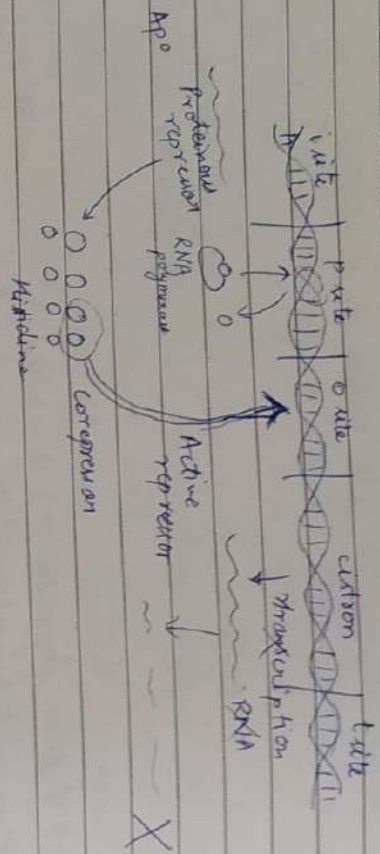 i site p site o site cistron t site
Transcription
RNA
Proteinous
repressor
RNA
polymerase
Active
repressor
Apo
Corepression
Histidine
X